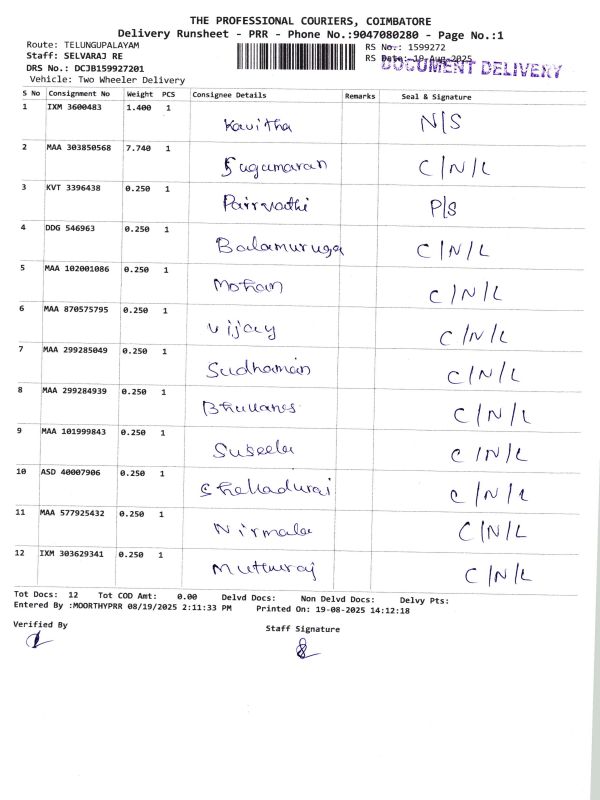 THE PROFESSIONAL COURIERS, COIMBATORE
Delivery Runsheet - PRR - Phone No.:9047080280 - Page No.:1
Route: TELUNGUPALAYAM RS No.: 1599272
Staff: SELVARAJ RE RS Date: 19-Aug-2025
DOCUMENT DELIVERY
DRS No.: DCJB159927201
Vehicle: Two Wheeler Delivery
S No Consignment No Weight PCS Consignee Details Remarks Seal & Signature
1 IXM 3600483 1.400 1 Kavitha N/S
2 MAA 303850568 7.740 1 Sugamaran C/N/L
3 KVT 3396438 0.250 1 Pairvathi P/S
4 DDG 546963 0.250 1 Balamuruga C/N/L
5 MAA 102001086 0.250 1 Mohan C/N/L
6 MAA 870575795 0.250 1 Vijay C/N/L
7 MAA 299285049 0.250 1 Sudhaman C/N/L
8 MAA 299284939 0.250 1 C/N/L
9 MAA 101999843 0.250 1 Suseela C/N/L
10 ASD 40007906 0.250 1 Chelladurai C/N/L
11 MAA 577925432 0.250 1 Nirmala C/N/L
12 IXM 303629341 0.250 1 Muthuraj C/N/L
Tot Docs: 12 Tot COD Amt: 0.00 Delvd Docs: Non Delvd Docs: Delvy Pts:
Entered By :MOORTHYPRR 08/19/2025 2:11:33 PM Printed On: 19-08-2025 14:12:18
Verified By Staff Signature